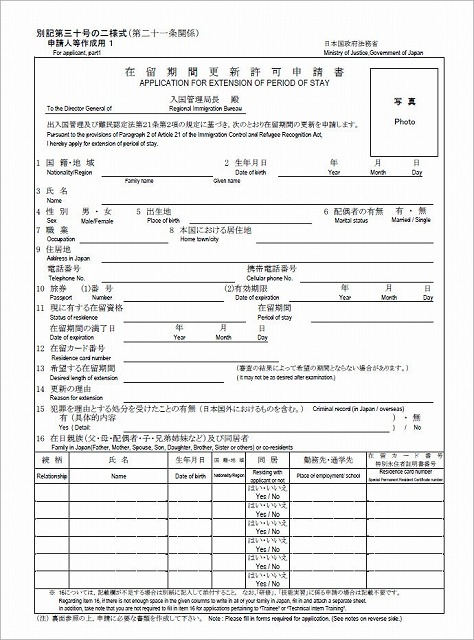 別記第三十号の二様式(第二十一条関係)
申請人等作成用 1
For applicant, part1
日本国政府法務省
Ministry of Justice,Government of Japan
在留期間更新許可申請書
APPLICATION FOR EXTENSION OF PERIOD OF STAY
入国管理局長 殿
To the Director General of Regional Immigration Bureau
写真
Photo
出入国管理及び難民認定法第21条第2項の規定に基づき,次のとおり在留期間の更新を申請します。
Pursuant to the provisions of Paragraph 2 of Article 21 of the Immigration Control and Refugee Recognition Act,
I hereby apply for extension of period of stay.
1 国籍・地域 2 生年月日 年 月 日
Nationality/Region Date of birth Year Month Day
Family name Given name
3 氏名
Name
4 性別 男・女 5 出生地 6 配偶者の有無 有・無
Sex Male/Female Place of birth Marital status Married / Single
7 職業 8 本国における居住地
Occupation Home town/city
9 住居地
Address in Japan
電話番号 携帯電話番号
Telephone No. Cellular phone No.
10 旅券 (1)番号 (2)有効期限 年 月 日
Passport Number Date of expiration Year Month Day
11 現に有する在留資格 在留期間
Status of residence Period of stay
在留期間の満了日 年 月 日
Date of expiration Year Month Day
12 在留カード番号
Residence card number
13 希望する在留期間 (審査の結果によって希望の期間とならない場合があります。)
Desired length of extension (It may not be as desired after examination.)
14 更新の理由
Reason for extension
15 犯罪を理由とする処分を受けたことの有無(日本国外におけるものを含む。) Criminal record (in Japan / overseas)
有(具体的内容 )・無
Yes ( Detail: ) / No
16 在日親族(父・母・配偶者・子・兄弟姉妹など)及び同居者
Family in Japan(Father, Mother, Spouse, Son, Daughter, Brother, Sister or others) or co-residents
続柄 氏名 生年月日 国籍・地域 同居 勤務先・通学先 在留カード番号
特別永住者証明書番号
Relationship Name Date of birth Nationality/Region Residing with applicant or not Place of employment/ school Residence card number
Special Permanent Resident Certificate number
はい・いいえ
Yes / No
はい・いいえ
Yes / No
はい・いいえ
Yes / No
はい・いいえ
Yes / No
はい・いいえ
Yes / No
はい・いいえ
Yes / No
※ 16については,記載欄が不足する場合は別紙に記入して添付すること。なお,「研修」,「技能実習」に係る申請の場合は記載不要です。
Regarding item 16, if there is not enough space in the given columns to write in all of your family in Japan, fill in and attach a separate sheet.
In addition, take note that you are not required to fill in item 16 for applications pertaining to "Trainee" or "Technical Intern Training".
(注) 裏面参照の上,申請に必要な書類を作成して下さい。 Note : Please fill in forms required for application. (See notes on reverse side.)